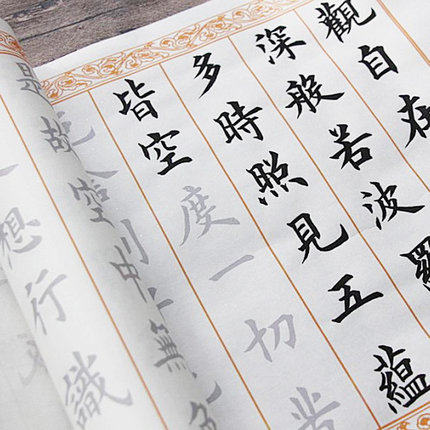 觀自在
深般若波羅
多時照見五蘊
皆空度一切苦
是故空中無色
想行識